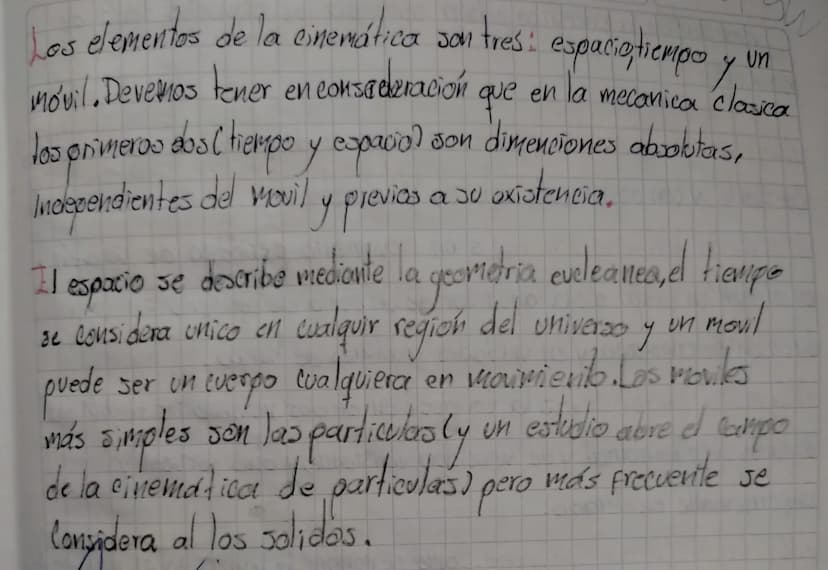 Los elementos de la cinemática son tres: espacio, tiempo y un
móvil. Devemos tener en consideración que en la mecanica clasica
los primeros dos (tiempo y espacio) son dimenciones absolutas,
independientes del movil y previos a su existencia.
El espacio se describe mediante la geometria eucleanea, el tiempo
se considera unico en cualquir region del universo y un movil
puede ser un cuerpo cualquiera en movimiento. Los moviles
más simples son las particulas (y un estudio abre el campo
de la cinematica de particulas) pero más frecuente se
considera al los solidos.